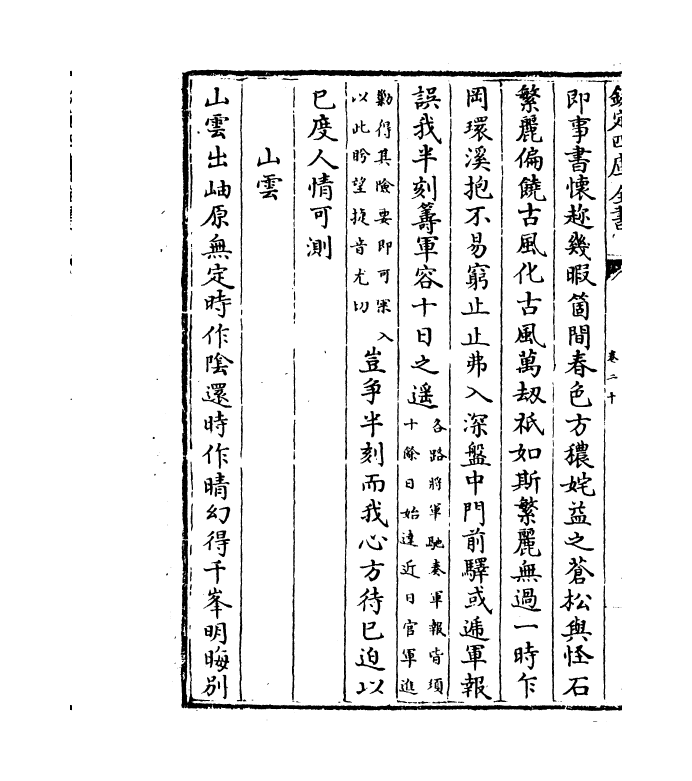 欽定四庫全書
卷二十
即事書懷趁幾暇箇間春色方穠姹益之蒼松與怪石
繁麗偏饒古風化古風萬刼祇如斯繁麗無過一時乍
岡環溪抱不易窮止止弗入深盤中門前驛或遞軍報
誤我半刻籌軍容十日之遥各路將軍馳奏軍報皆須
十餘日始達近日官軍進
勦得其險要即可深入
以此盻望捷音尤切豈爭半刻而我心方待已迫以
已度人情可測
山雲
山雲出岫原無定時作陰還時作晴幻得千峯明晦别